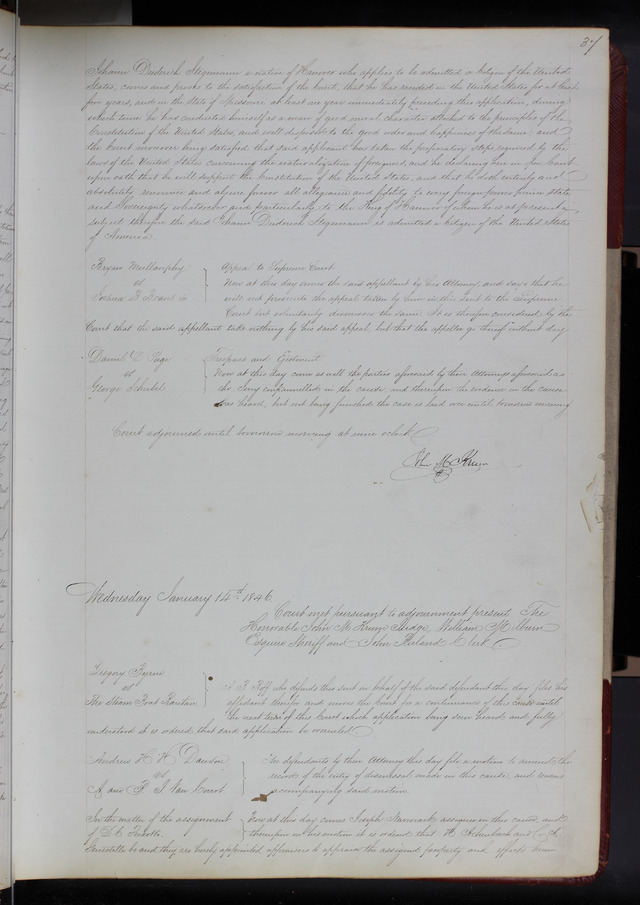 37
Johann Diederich Stegemann a native of Hanover who applies to be admitted a citizen of the United
States, comes and proves to the satisfaction of the Court, that he has resided in the United States for at least
five years, and in the State of Missouri at least one year immediately preceding this application, during
which time he has conducted himself as a man of good moral character attached to the principles of the
Constitution of the United States, and well disposed to the good order and happiness of the same; and
the Court moreover being satisfied that said applicant has taken the preparatory steps required by the
laws of the United States concerning the naturalization of foreigners, and he declaring here in open Court
upon oath that he will support the Constitution of the United States, and that he doth entirely and
absolutely renounce and abjure forever all allegiance and fidelity to every foreign power, prince state
and Sovereignty whatsoever and particularly to the King of Hanover of whom he is at present a
subject therefore the said Johann Diederich Stegemann is admitted a citizen of the United States
of America.
Bryan Mullanphy
vs
Joshua B Brant
Appeal to Supreme Court
Now at this day comes the said appellant by his Attorney, and says that he
will not prosecute the appeal taken by him in this suit to the Supreme
Court but voluntarily dismisses the same. It is therefore considered by the
Court that the said appellant take nothing by his said appeal, but that the appellee go thereof without day
Daniel D. Page
vs
George Scheibel
Trespass and Ejectment
Now at this day come as well the parties aforesaid by their Attorneys aforesaid as
the Jury empannelled in the cause, and thereupon the evidence in the cause
was heard, but not being finished the case is laid over until tomorrow morning
Court adjourned until tomorrow morning at nine oclock
John M. Krum
Wednesday January 14th 1846
Court met pursuant to adjournment present The
Honorable John M. Krum Judge, William Milburn
Esquire Sheriff and John Ruland Clerk.
Gregory Byrne
vs
The Steam Boat
who defends this suit on behalf of the said defendant this day files his
affidavit therefor and moves the Court for a continuance of this cause until
the next term of this Court which application being seen heard and fully
understood it is ordered that said application be overruled
Andrew H. H. Dawson
vs
A and F. J. Van
The defendants by their Attorney this day file a motion to amend the
records of the entry of dismissal made in this cause, and reasons
accompanying said motion.
In the matter of the assignment
of
Now at this day comes Joseph Newmark assignee in this cause, and
thereupon on his motion it is ordered that and
be and they are hereby appointed appraisers to appraise the assigned property and effects herein